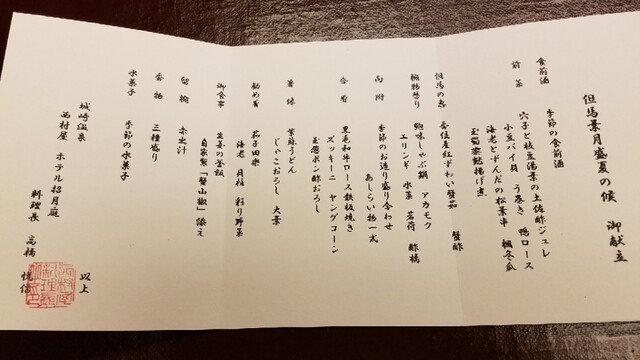 但馬葉月盛夏の候　御献立
食前酒　季節の食前酒
前菜　穴子と枝豆湯葉の土佐酢ジュレ
小豆バイ貝　う巻き　鴨ロース
海老とずんだの松葉串　楓冬瓜
玉蜀黍饂揚げ煮
但馬の恵　香住産紅ずわい蟹茹　蟹酢
椀物替り　鮑味しゃぶ鍋　アカモク
エリンギ　水菜　茗荷　酢橘
向附　季節のお造り盛り合わせ
あしらい物一式
合肴　黒毛和牛ロース鉄板焼き
ズッキーニ　ヤングコーン
玉葱ポン酢おろし
箸休　紫蘇うどん
じゃこおろし　大葉
勧め肴　茄子田楽
海老　貝柱　彩り野菜
御食事　生姜の釜飯
自家製「蟹山椒」添え
留椀　赤出汁
香物　三種盛り
水菓子　季節の水菓子
以上
城崎温泉
西村屋　ホテル招月庭
料理長　高橋　悦信